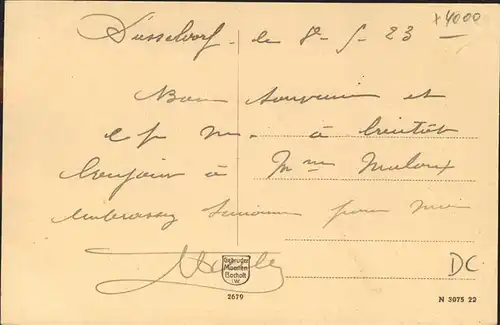 x 4000
Düsseldorf - le 8 - 5 - 23
Bon souvenir et
à bientôt
bonjour à Mme
embrassez pour moi
Gebrüder
Maasen
Bocholt
i.W.
DC
2679
N 3075 22